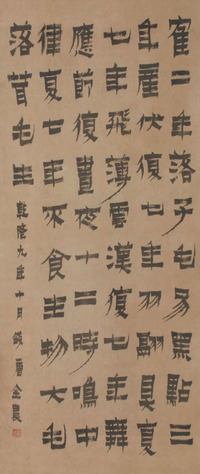 寉二年落子毛易黑點三
年產伏復七年羽翮具復
七年飛薄雲漢復七年舞
應節復晝夜十二時鳴中
律復七年不食生物大毛
落茸毛生 乾隆九年十月錢唐金農